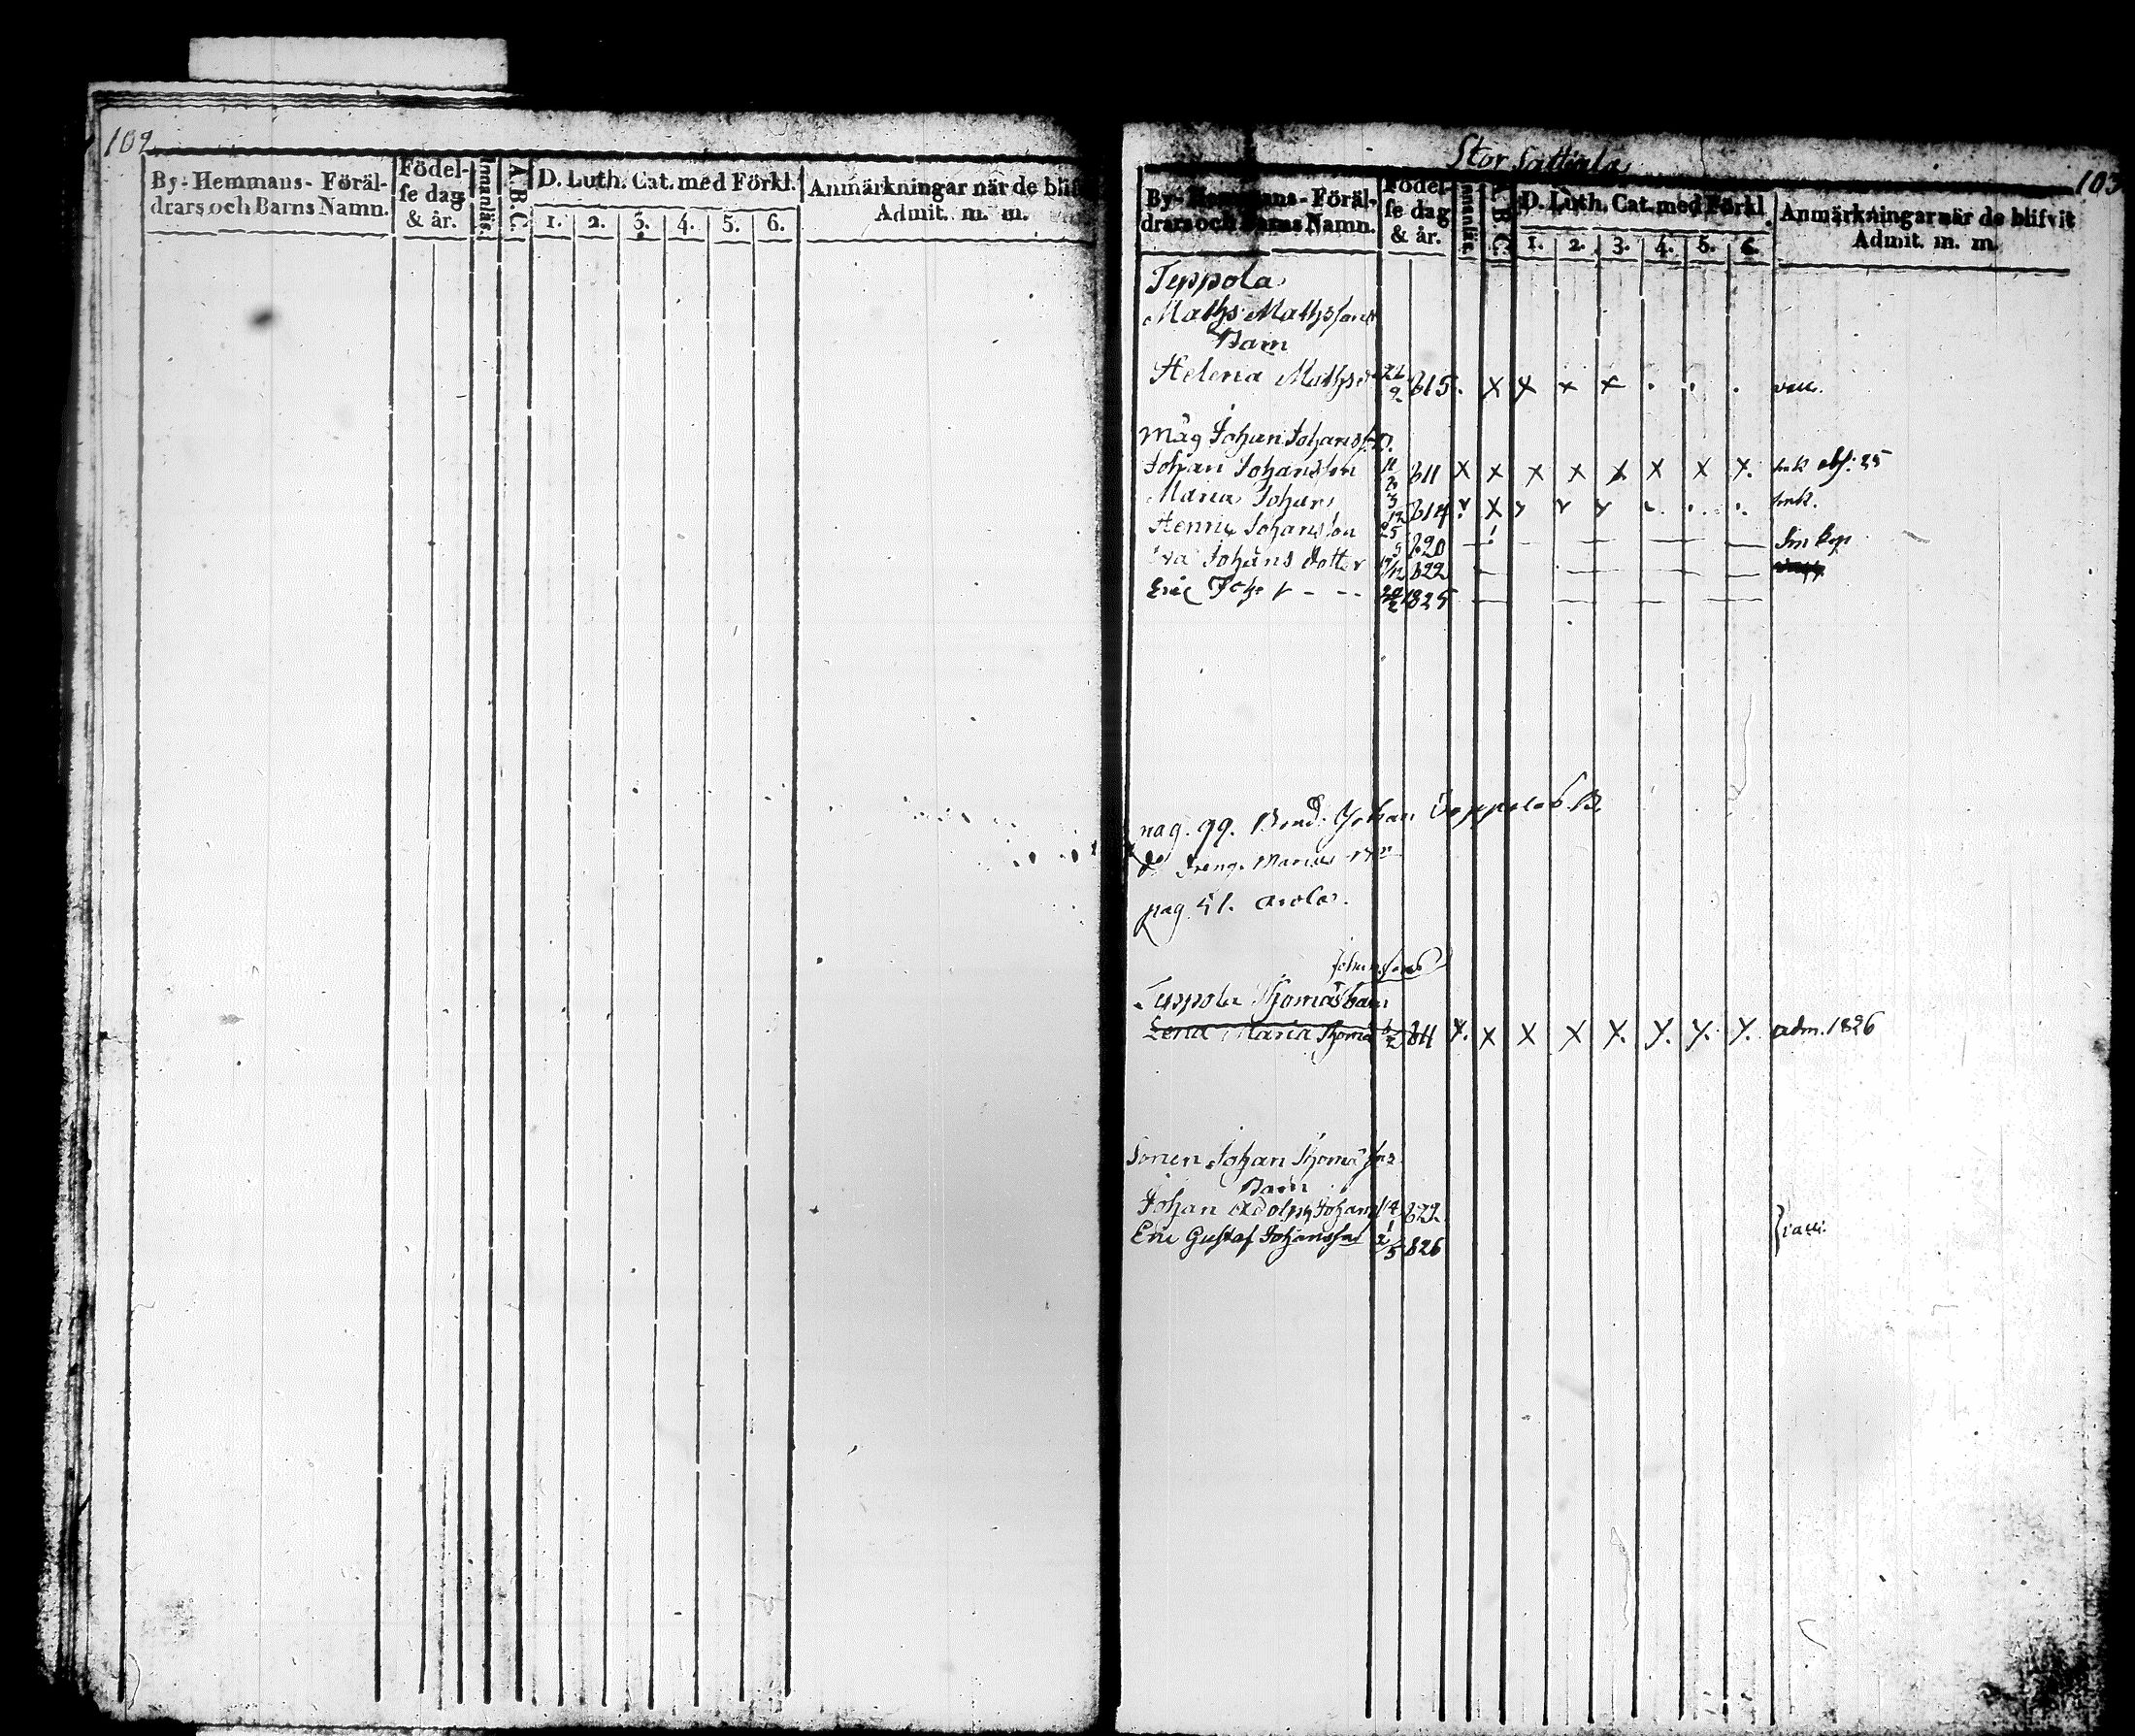 102
By- Hemmans- Föräl-
drars och Barns Namn.
Födel-
se dag
& år.
Innanläs.
A.B.C.
D. Luth. Cat. med Förkl.
1. 2. 3. 4. 5. 6.
Anmärkningar när de blif
Admit. m. m.
Stor Sattiala
103
By- Hemmans- Föräl-
drars och Barns Namn.
Födel-
se dag
& år.
Innanläs.
A.B.C.
D. Luth. Cat. med Förkl.
1. 2. 3. 4. 5. 6.
Anmärkningar när de blifvit
Admit. m. m.
Teppola
Mathz Mathzson
Barn
Helena Mathzd 815 . x x x x . . . vacc.
Måg Johan Johanss
Johan Johansson 811 x x x x x x x x. 25
Maria Johans 814
Henric Johansson 25/5 820
Johans dotter 19/12 822
Eric Joh 1825
pag. 99. Bond. Johan Teppolas B.
do Dreng
pag. 51. Arola
Johan
Teppola Thomas barn
Lena Maria Thoma 811 x. x x x x. x. x. x. adm. 1826
Sonen Johan Thomas
Barn
Johan Adolph Johans 14/1 822
Eric Gustaf Johansson 2/5 826
vacc.